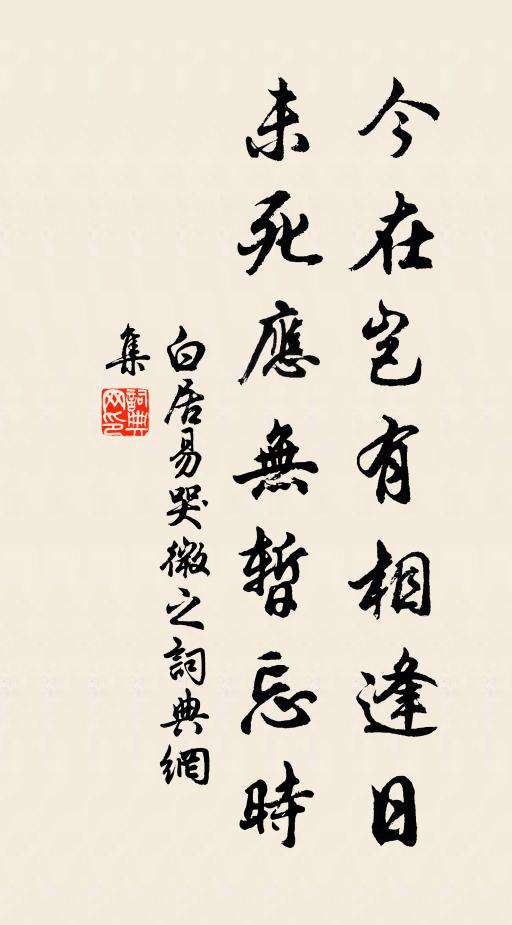 今在岂有相逢日
未死應無暫忘時
白居易哭微之詞典網
集
詞典
网印